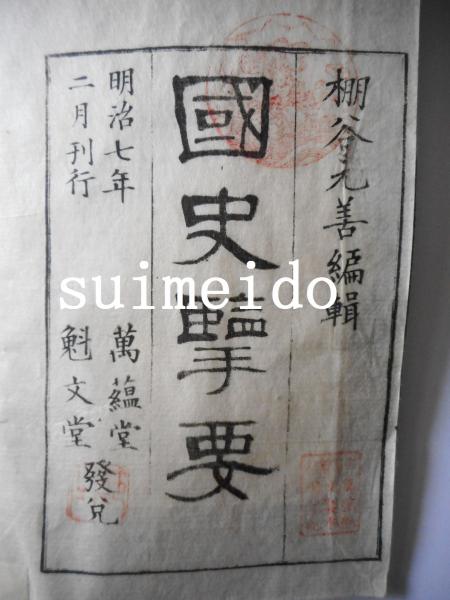 棚谷元善編輯
國史擥要
明治七年
二月刊行
萬蘊堂
魁文堂
發兌
suimeido